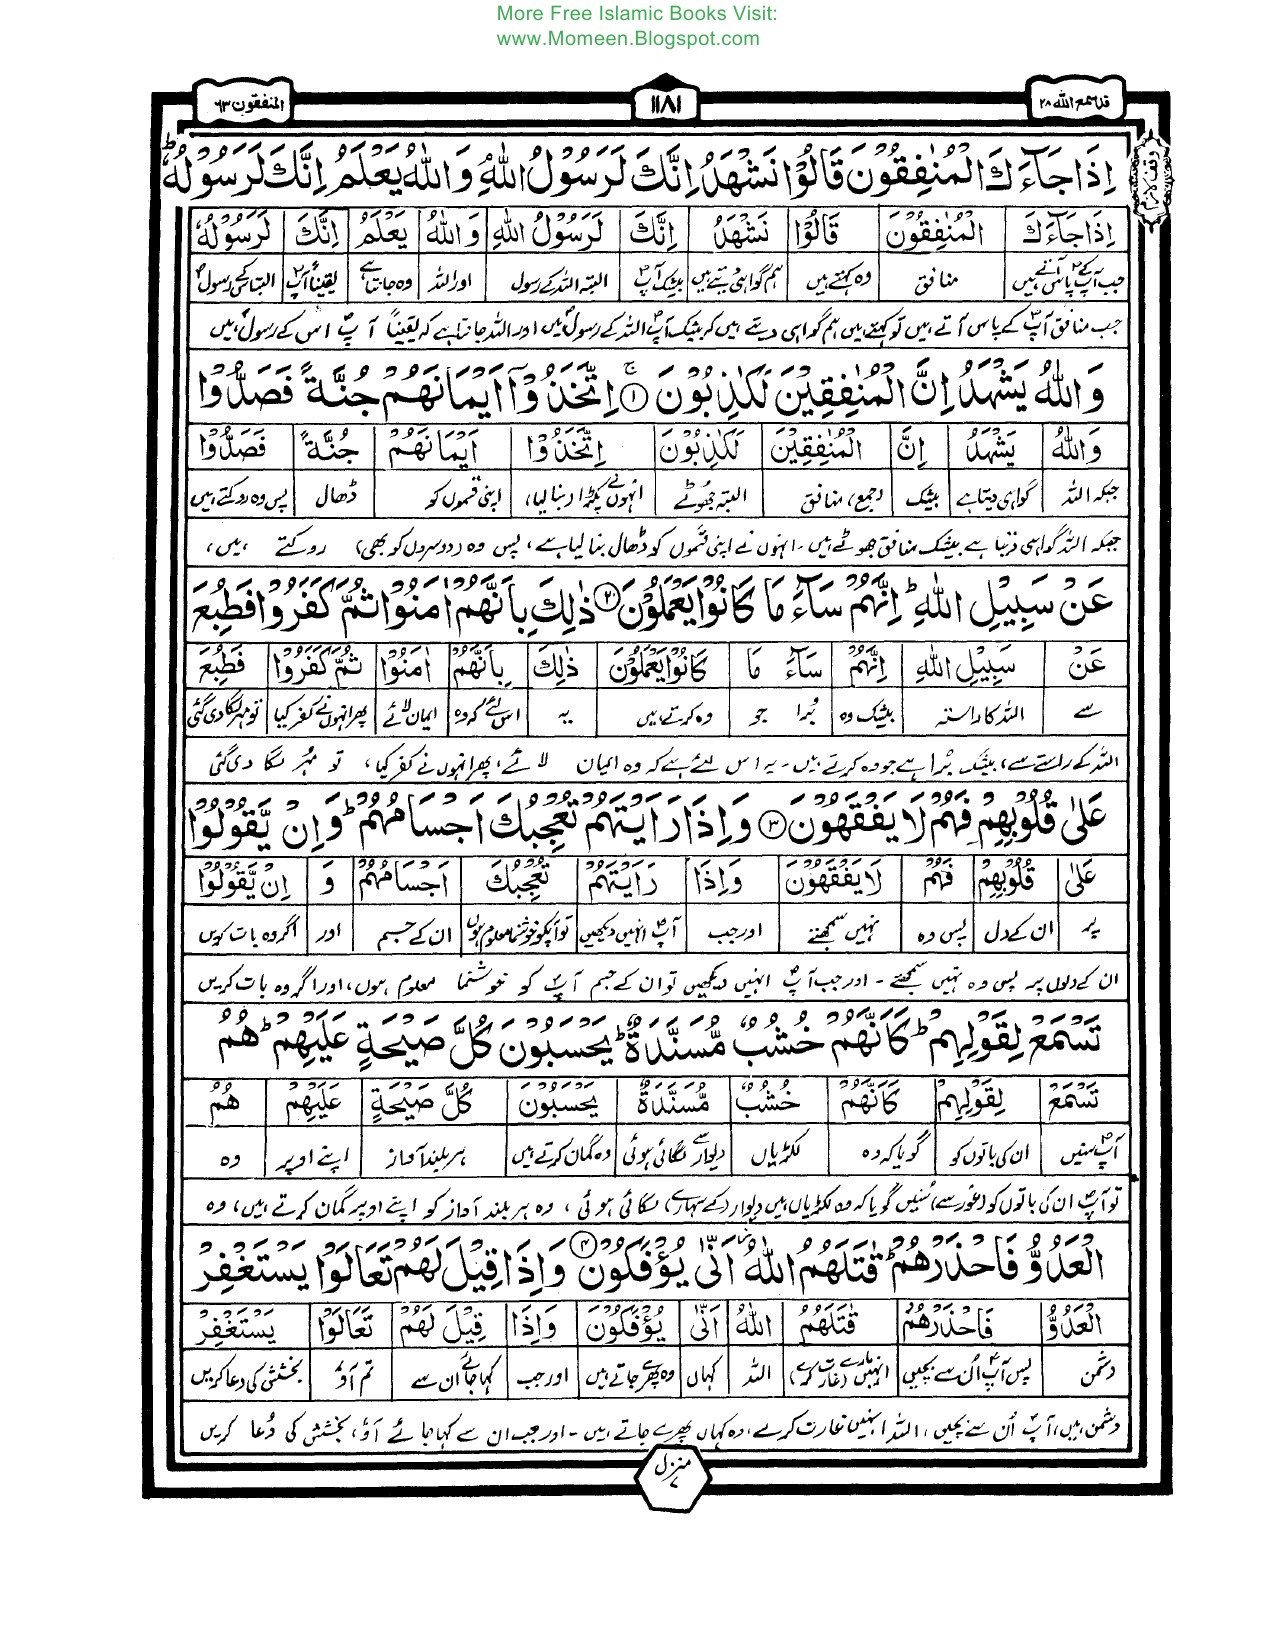 More Free Islamic Books Visit:
www.Momeen.Blogspot.com
قد سمع الله ۲۸
۱۱۸۱
المنفقون ۶۳
اِذَا جَآءَكَ الْمُنٰفِقُوْنَ قَالُوْا نَشْهَدُ اِنَّكَ لَرَسُوْلُ اللّٰهِ وَاللّٰهُ يَعْلَمُ اِنَّكَ لَرَسُوْلُهٗ ؕ
اِذَا جَآءَكَ الْمُنٰفِقُوْنَ قَالُوْا نَشْهَدُ اِنَّكَ لَرَسُوْلُ اللّٰهِ وَاللّٰهُ يَعْلَمُ اِنَّكَ لَرَسُوْلُهٗ
جب آپ کے پاس آتے ہیں منافق وہ کہتے ہیں ہم گواہی دیتے ہیں بیشک آپ البتہ اللہ کے رسول اور اللہ وہ جانتا ہے یقیناً آپ البتہ اس کے رسول
جب منافق آپ کے پاس آتے ہیں تو کہتے ہیں ہم گواہی دیتے ہیں کہ بیشک آپ اللہ کے رسول ہیں اور اللہ جانتا ہے کہ یقیناً آپ اس کے رسول ہیں،
وَاللّٰهُ يَشْهَدُ اِنَّ الْمُنٰفِقِيْنَ لَكٰذِبُوْنَ ۱ اِتَّخَذُوْٓا اَيْمَانَهُمْ جُنَّةً فَصَدُّوْا
وَاللّٰهُ يَشْهَدُ اِنَّ الْمُنٰفِقِيْنَ لَكٰذِبُوْنَ اِتَّخَذُوْٓا اَيْمَانَهُمْ جُنَّةً فَصَدُّوْا
جبکہ اللہ گواہی دیتا ہے بیشک (جمع) منافق البتہ جھوٹے انہوں نے پکڑا (بنالیا) اپنی قسموں کو ڈھال پس وہ روکتے ہیں
جبکہ اللہ گواہی دیتا ہے بیشک منافق جھوٹے ہیں۔ انہوں نے اپنی قسموں کو ڈھال بنا لیا ہے، پس وہ (دوسروں کو بھی) روکتے ہیں،
عَنْ سَبِيْلِ اللّٰهِ ؕ اِنَّهُمْ سَآءَ مَا كَانُوْا يَعْمَلُوْنَ ۲ ذٰلِكَ بِاَنَّهُمْ اٰمَنُوْا ثُمَّ كَفَرُوْا فَطُبِعَ
عَنْ سَبِيْلِ اللّٰهِ اِنَّهُمْ سَآءَ مَا كَانُوْا يَعْمَلُوْنَ ذٰلِكَ بِاَنَّهُمْ اٰمَنُوْا ثُمَّ كَفَرُوْا فَطُبِعَ
سے اللہ کا راستہ بیشک وہ بُرا جو وہ کرتے ہیں یہ اس لئے کہ وہ ایمان لائے پھر انہوں نے کفر کیا تو مہر لگا دی گئی
اللہ کے راستے سے، بیشک بُرا ہے جو وہ کرتے ہیں۔ یہ اس لئے ہے کہ وہ ایمان لائے، پھر انہوں نے کفر کیا، تو مہر لگا دی گئی
عَلٰى قُلُوْبِهِمْ فَهُمْ لَا يَفْقَهُوْنَ ۳ وَاِذَا رَاَيْتَهُمْ تُعْجِبُكَ اَجْسَامُهُمْ ؕ وَاِنْ يَّقُوْلُوْا
عَلٰى قُلُوْبِهِمْ فَهُمْ لَا يَفْقَهُوْنَ وَاِذَا رَاَيْتَهُمْ تُعْجِبُكَ اَجْسَامُهُمْ وَ اِنْ يَّقُوْلُوْا
پر ان کے دل پس وہ نہیں سمجھتے اور جب آپ انہیں دیکھیں تو آپکو خوشنما معلوم ہوں ان کے جسم اور اگر وہ بات کریں
ان کے دلوں پر پس وہ نہیں سمجھتے۔ اور جب آپ انہیں دیکھیں تو ان کے جسم آپ کو خوشنما معلوم ہوں، اور اگر وہ بات کریں
تَسْمَعْ لِقَوْلِهِمْ ؕ كَاَنَّهُمْ خُشُبٌ مُّسَنَّدَةٌ ؕ يَحْسَبُوْنَ كُلَّ صَيْحَةٍ عَلَيْهِمْ ؕ هُمُ
تَسْمَعْ لِقَوْلِهِمْ كَاَنَّهُمْ خُشُبٌ مُّسَنَّدَةٌ يَحْسَبُوْنَ كُلَّ صَيْحَةٍ عَلَيْهِمْ هُمُ
آپ سنیں ان کی باتوں کو گویا کہ وہ لکڑیاں دیوار سے لگائی ہوئی وہ گمان کرتے ہیں ہر بلند آواز اپنے اوپر وہ
تو آپ ان کی باتوں کو (غور سے) سنیں گویا کہ وہ لکڑیاں ہیں دیوار (کے سہارے) لگائی ہوئی، وہ ہر بلند آواز کو اپنے اوپر گمان کرتے ہیں، وہ
الْعَدُوُّ فَاحْذَرْهُمْ ؕ قٰتَلَهُمُ اللّٰهُ اَنّٰى يُؤْفَكُوْنَ ۴ وَاِذَا قِيْلَ لَهُمْ تَعَالَوْا يَسْتَغْفِرْ
الْعَدُوُّ فَاحْذَرْهُمْ قٰتَلَهُمُ اللّٰهُ اَنّٰى يُؤْفَكُوْنَ وَاِذَا قِيْلَ لَهُمْ تَعَالَوْا يَسْتَغْفِرْ
دشمن پس آپ اُن سے بچیں انہیں مارے (غارت کرے) اللہ کہاں وہ پھرے جاتے ہیں اور جب کہا جائے ان سے تم آؤ بخشش کی دعا کریں
دشمن ہیں، آپ اُن سے بچیں، اللہ انہیں غارت کرے، وہ کہاں پھرے جاتے ہیں۔ اور جب ان سے کہا جائے آؤ، بخشش کی دُعا کریں
منزل ۷